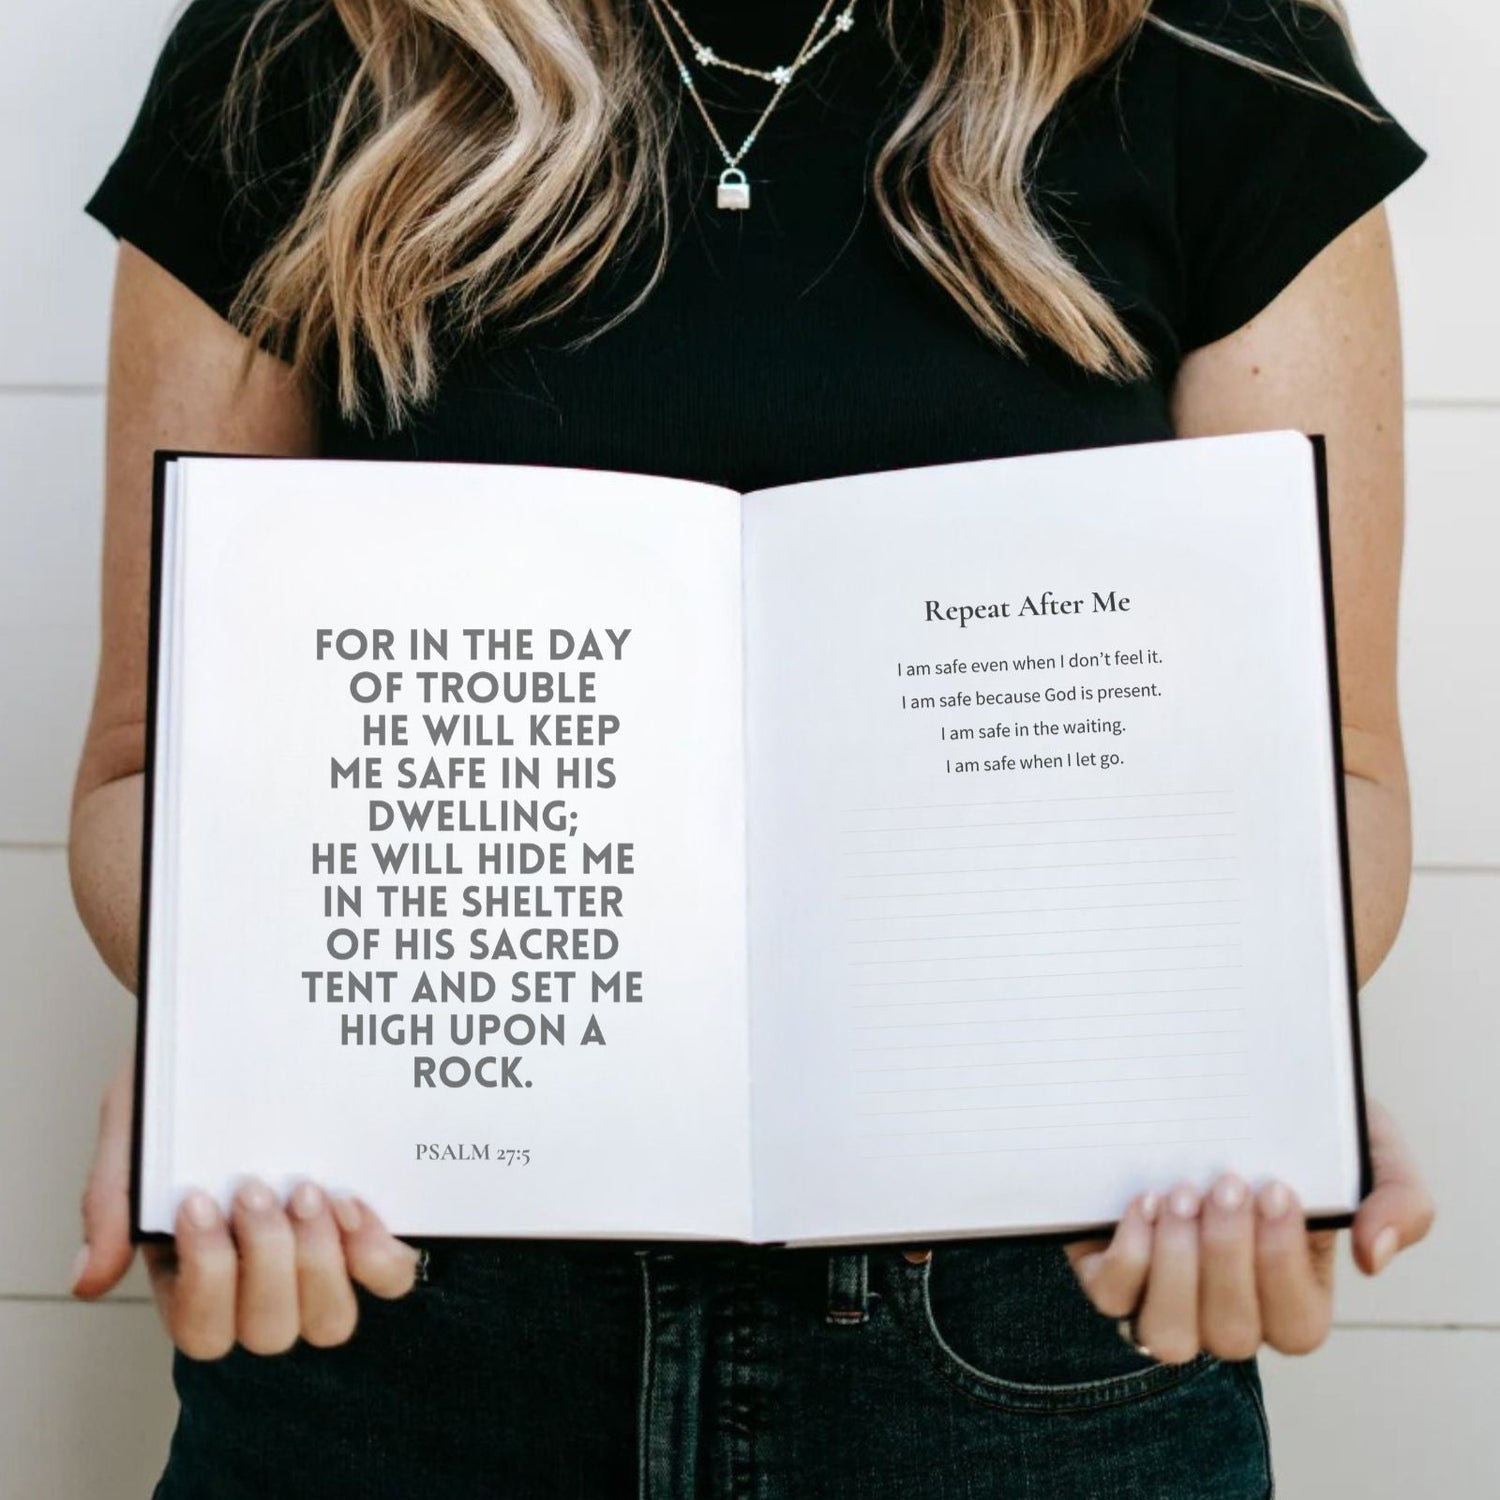 FOR IN THE DAY
OF TROUBLE
HE WILL KEEP
ME SAFE IN HIS
DWELLING;
HE WILL HIDE ME
IN THE SHELTER
OF HIS SACRED
TENT AND SET ME
HIGH UPON A
ROCK.
PSALM 27:5
Repeat After Me
I am safe even when I don’t feel it.
I am safe because God is present.
I am safe in the waiting.
I am safe when I let go.